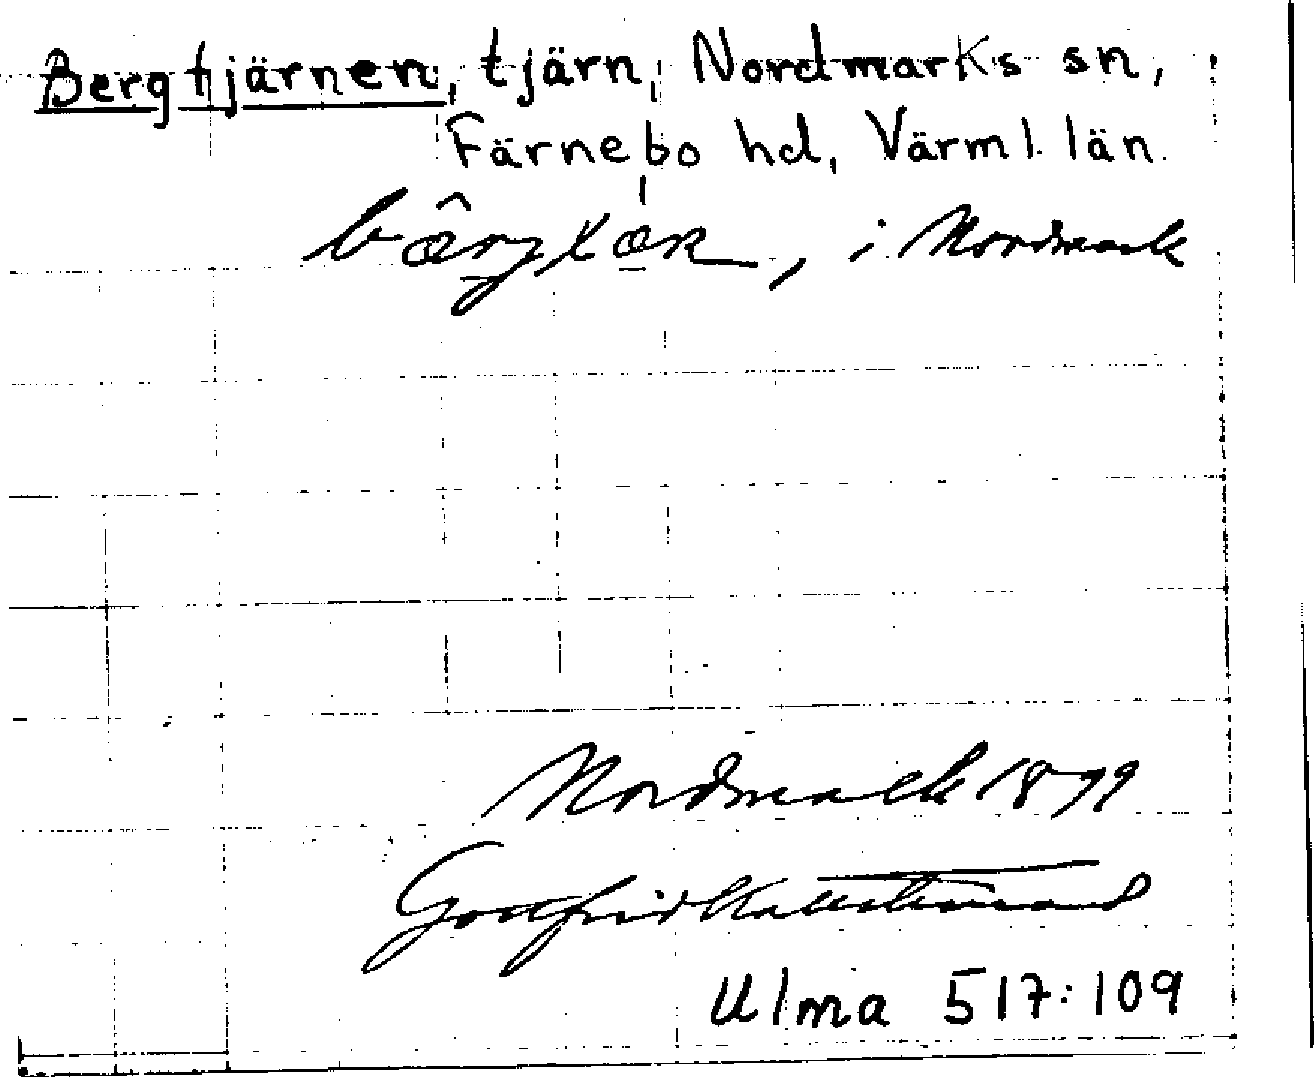 Bergtjärnen, tjärn, Nordmarks sn,
Färnebo hd, Värml. län.
i Nordmark
Nordmark 1879
Gottfrid Kallstenius
Ulma 517:109